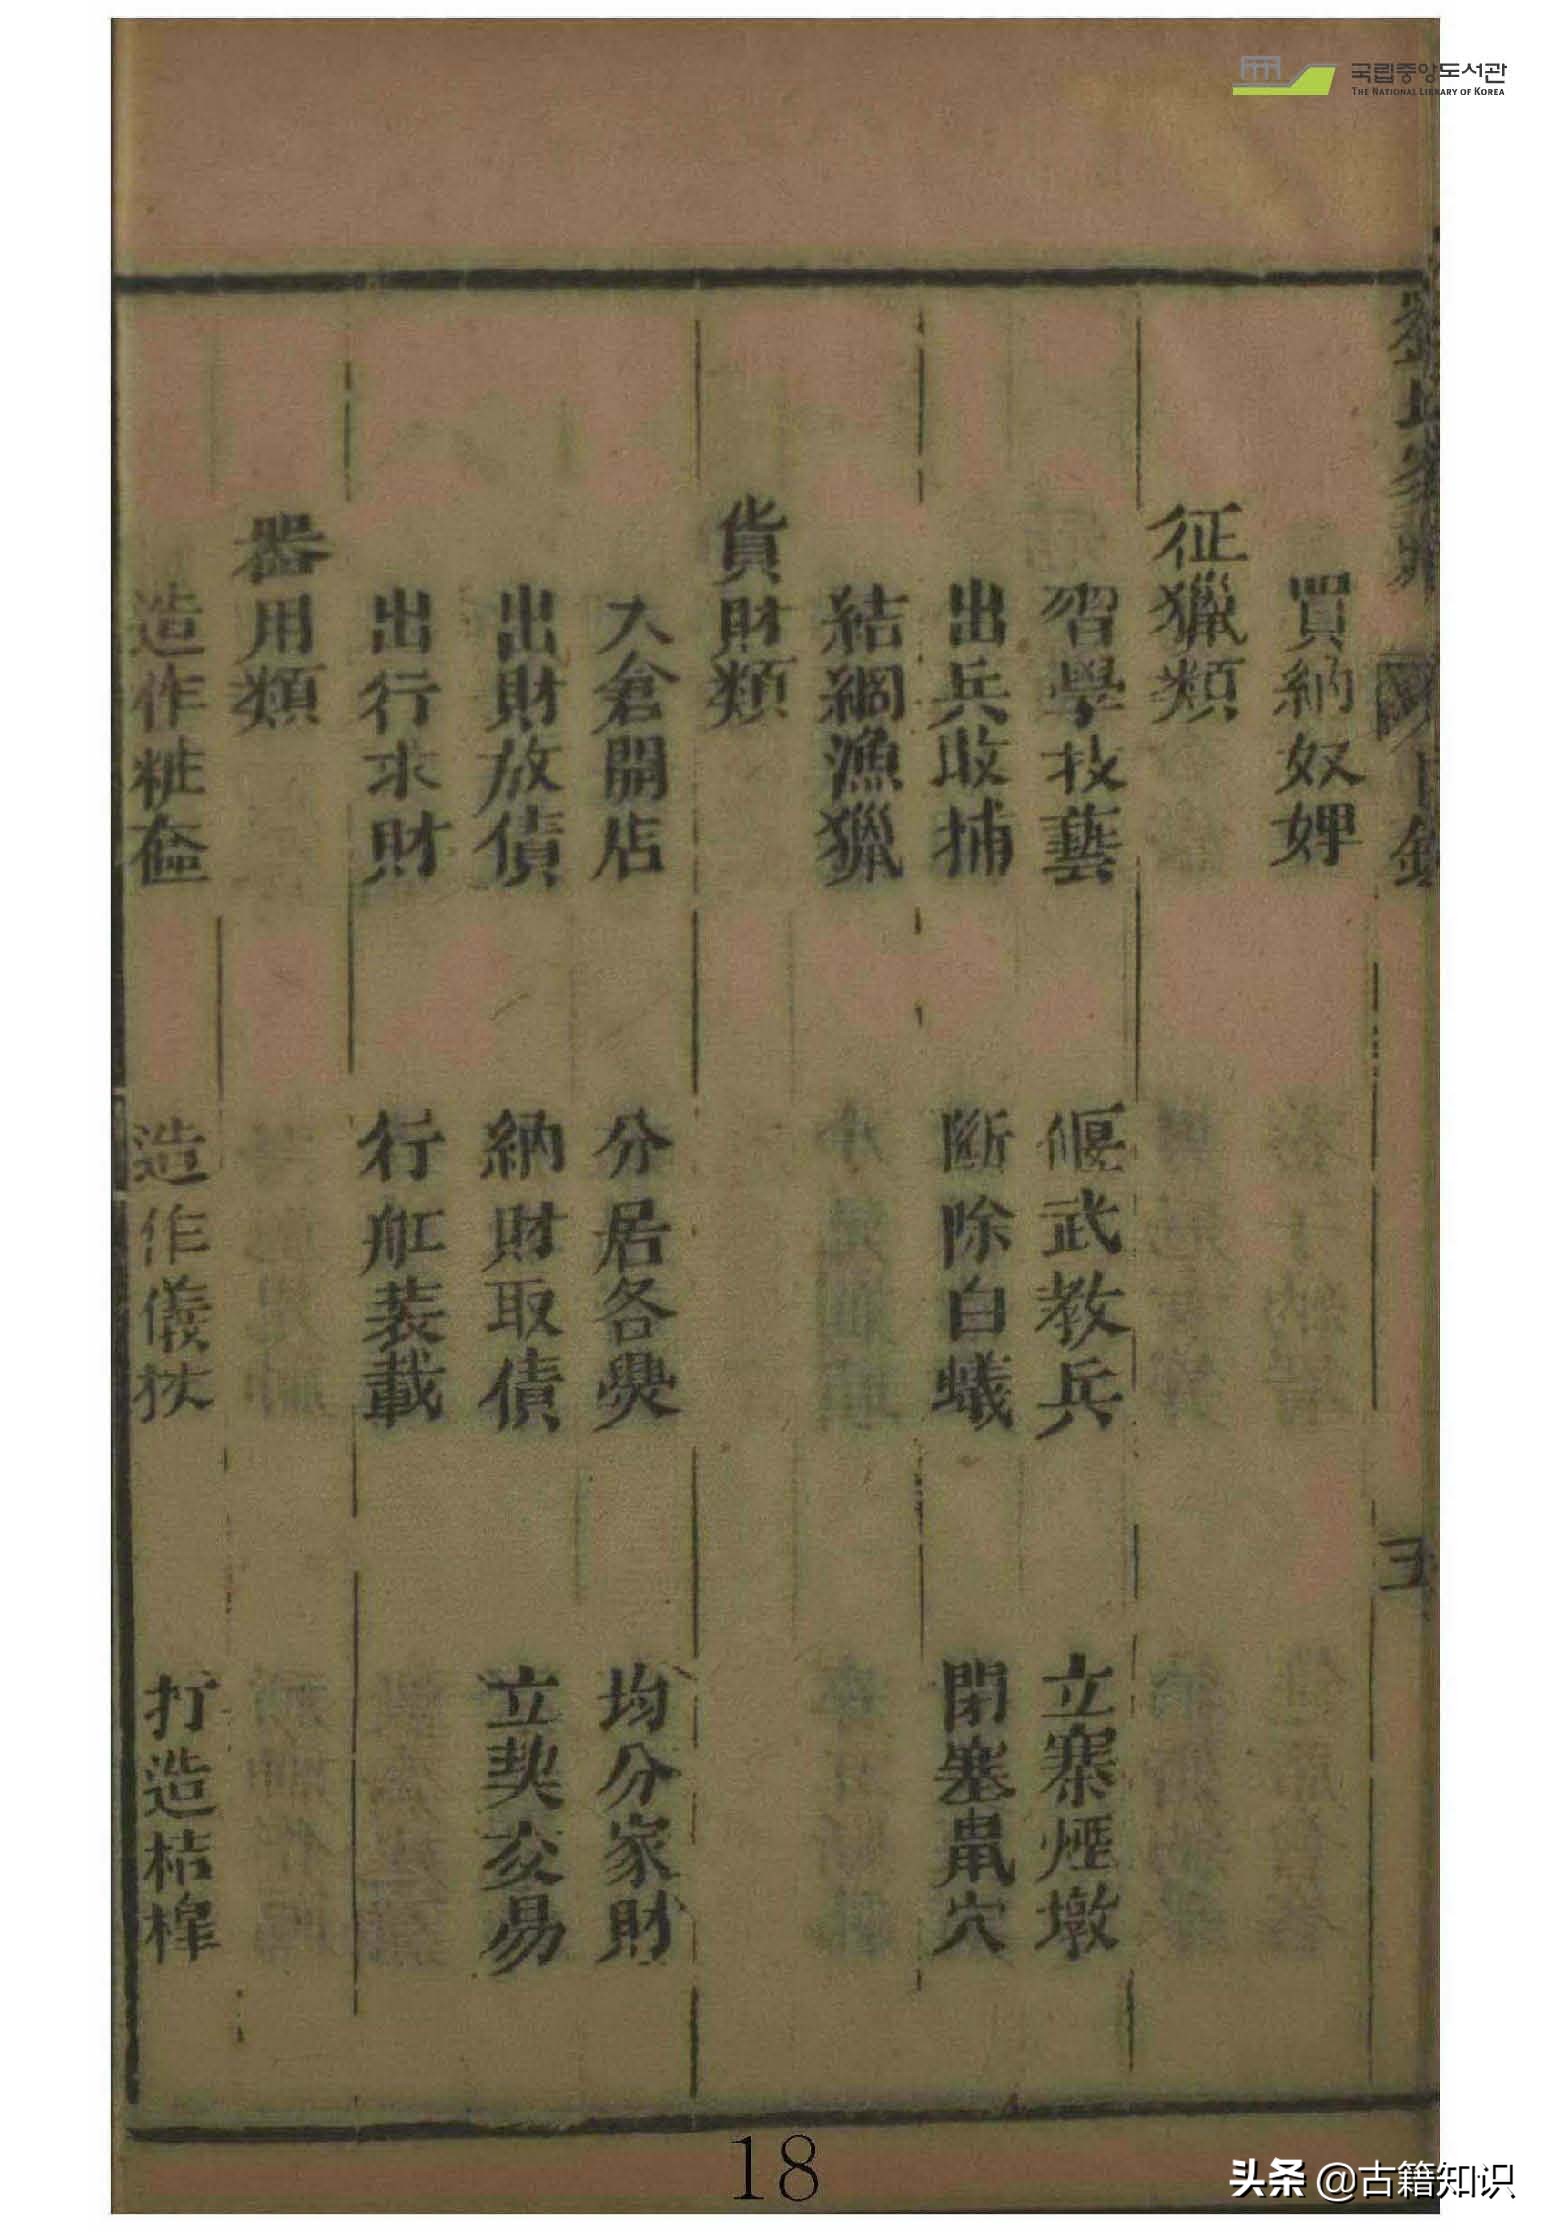 국립중앙도서관
THE NATIONAL LIBRARY OF KOREA
目錄
買納奴婢
征獵類
習學技藝 偃武教兵 立寨煙墩
出兵收捕 斷除白蟻 閉塞鼠穴
結網漁獵
貨財類
入倉開店 分居各爨 均分家財
出財放債 納財取債 立契交易
出行求財 行舡装載
器用類
造作粧奩 造作儀仗 打造桔槹
18
头条 @古籍知识